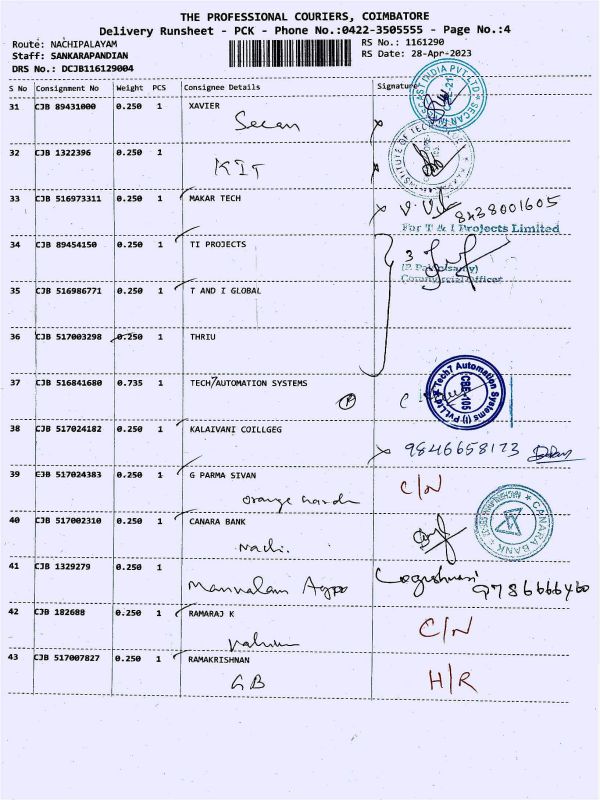 THE PROFESSIONAL COURIERS, COIMBATORE
Delivery Runsheet - PCK - Phone No.:0422-3505555 - Page No.:4
Route: NACHIPALAYAM RS No.: 1161290
Staff: SANKARAPANDIAN RS Date: 28-Apr-2023
DRS No.: DCJB116129004
S No Consignment No Weight PCS Consignee Details Signature
31 CJB 89431000 0.250 1 XAVIER
Secan
32 CJB 1322396 0.250 1
KIT
33 CJB 516973311 0.250 1 MAKAR TECH
8438001605
For T & I Projects Limited
34 CJB 89454150 0.250 1 TI PROJECTS
3
Commercial Officer
35 CJB 516986771 0.250 1 T AND I GLOBAL
36 CJB 517003298 0.250 1 THRIU
37 CJB 516841680 0.735 1 TECH7AUTOMATION SYSTEMS
Tech7 Automation Systems (I) Pvt.Ltd
CBE-105
38 CJB 517024182 0.250 1 KALAIVANI COILLGEG
9846658123
39 CJB 517024383 0.250 1 G PARMA SIVAN
C/N
40 CJB 517002310 0.250 1 CANARA BANK
Nachi.
CANARA BANK
41 CJB 1329279 0.250 1
9786666460
42 CJB 182688 0.250 1 RAMARAJ K
C/N
43 CJB 517007827 0.250 1 RAMAKRISHNAN
GB
H/R